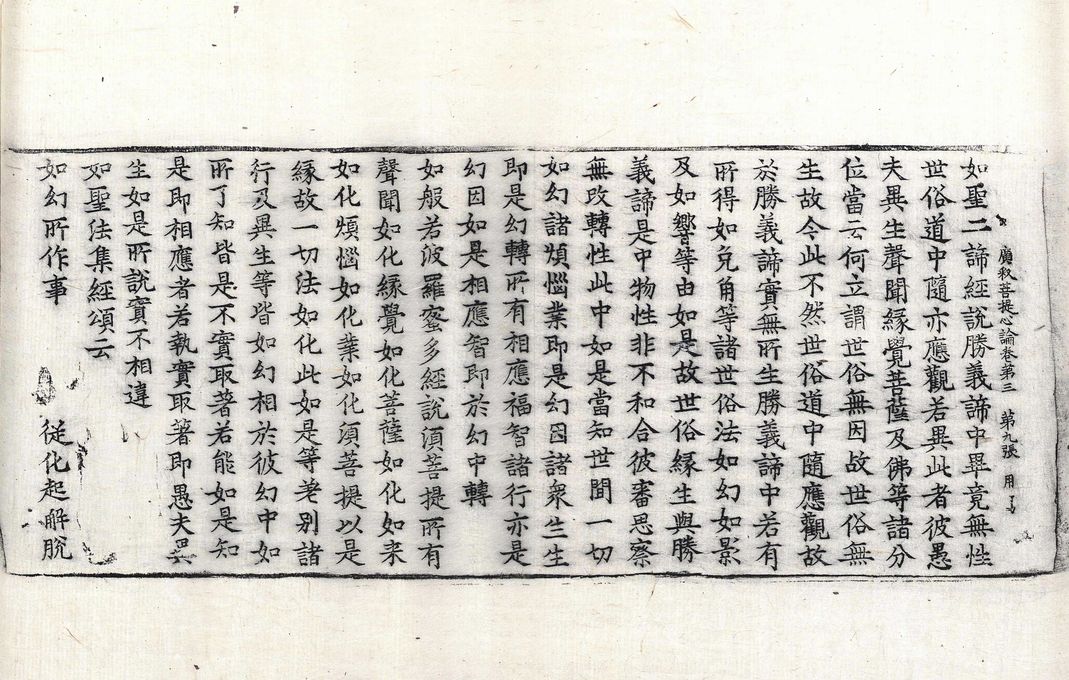 廣釈菩提心論卷第三 第九張 用
如聖二諦經說勝義諦中畢竟無性
世俗道中隨亦應觀若異此者彼愚
夫異生聲聞緣覺菩薩及佛等諸分
位當云何立謂世俗無因故世俗無
生故令此不然世俗道中隨應觀故
於勝義諦實無所生勝義諦中若有
所得如兎角等諸世俗法如幻如影
及如響等由如是故世俗緣生與勝
義諦是中物性非不和合彼審思察
無改轉性此中如是當知世間一切
如幻諸煩惱業即是幻因諸衆生生
即是幻轉所有相應福智諸行亦是
幻因如是相應智即於幻中轉
如般若波羅蜜多經說須菩提所有
聲聞如化緣覺如化菩薩如化如来
如化煩惱如化業如化須菩提以是
緣故一切法如化此如是等差别諸
行及異生等皆如幻相於彼幻中如
所了知皆是不實取著若能如是知
是即相應者若執實取著即愚夫異
生如是所說實不相違
如聖法集經頌云
如幻所作事 從化起解脫